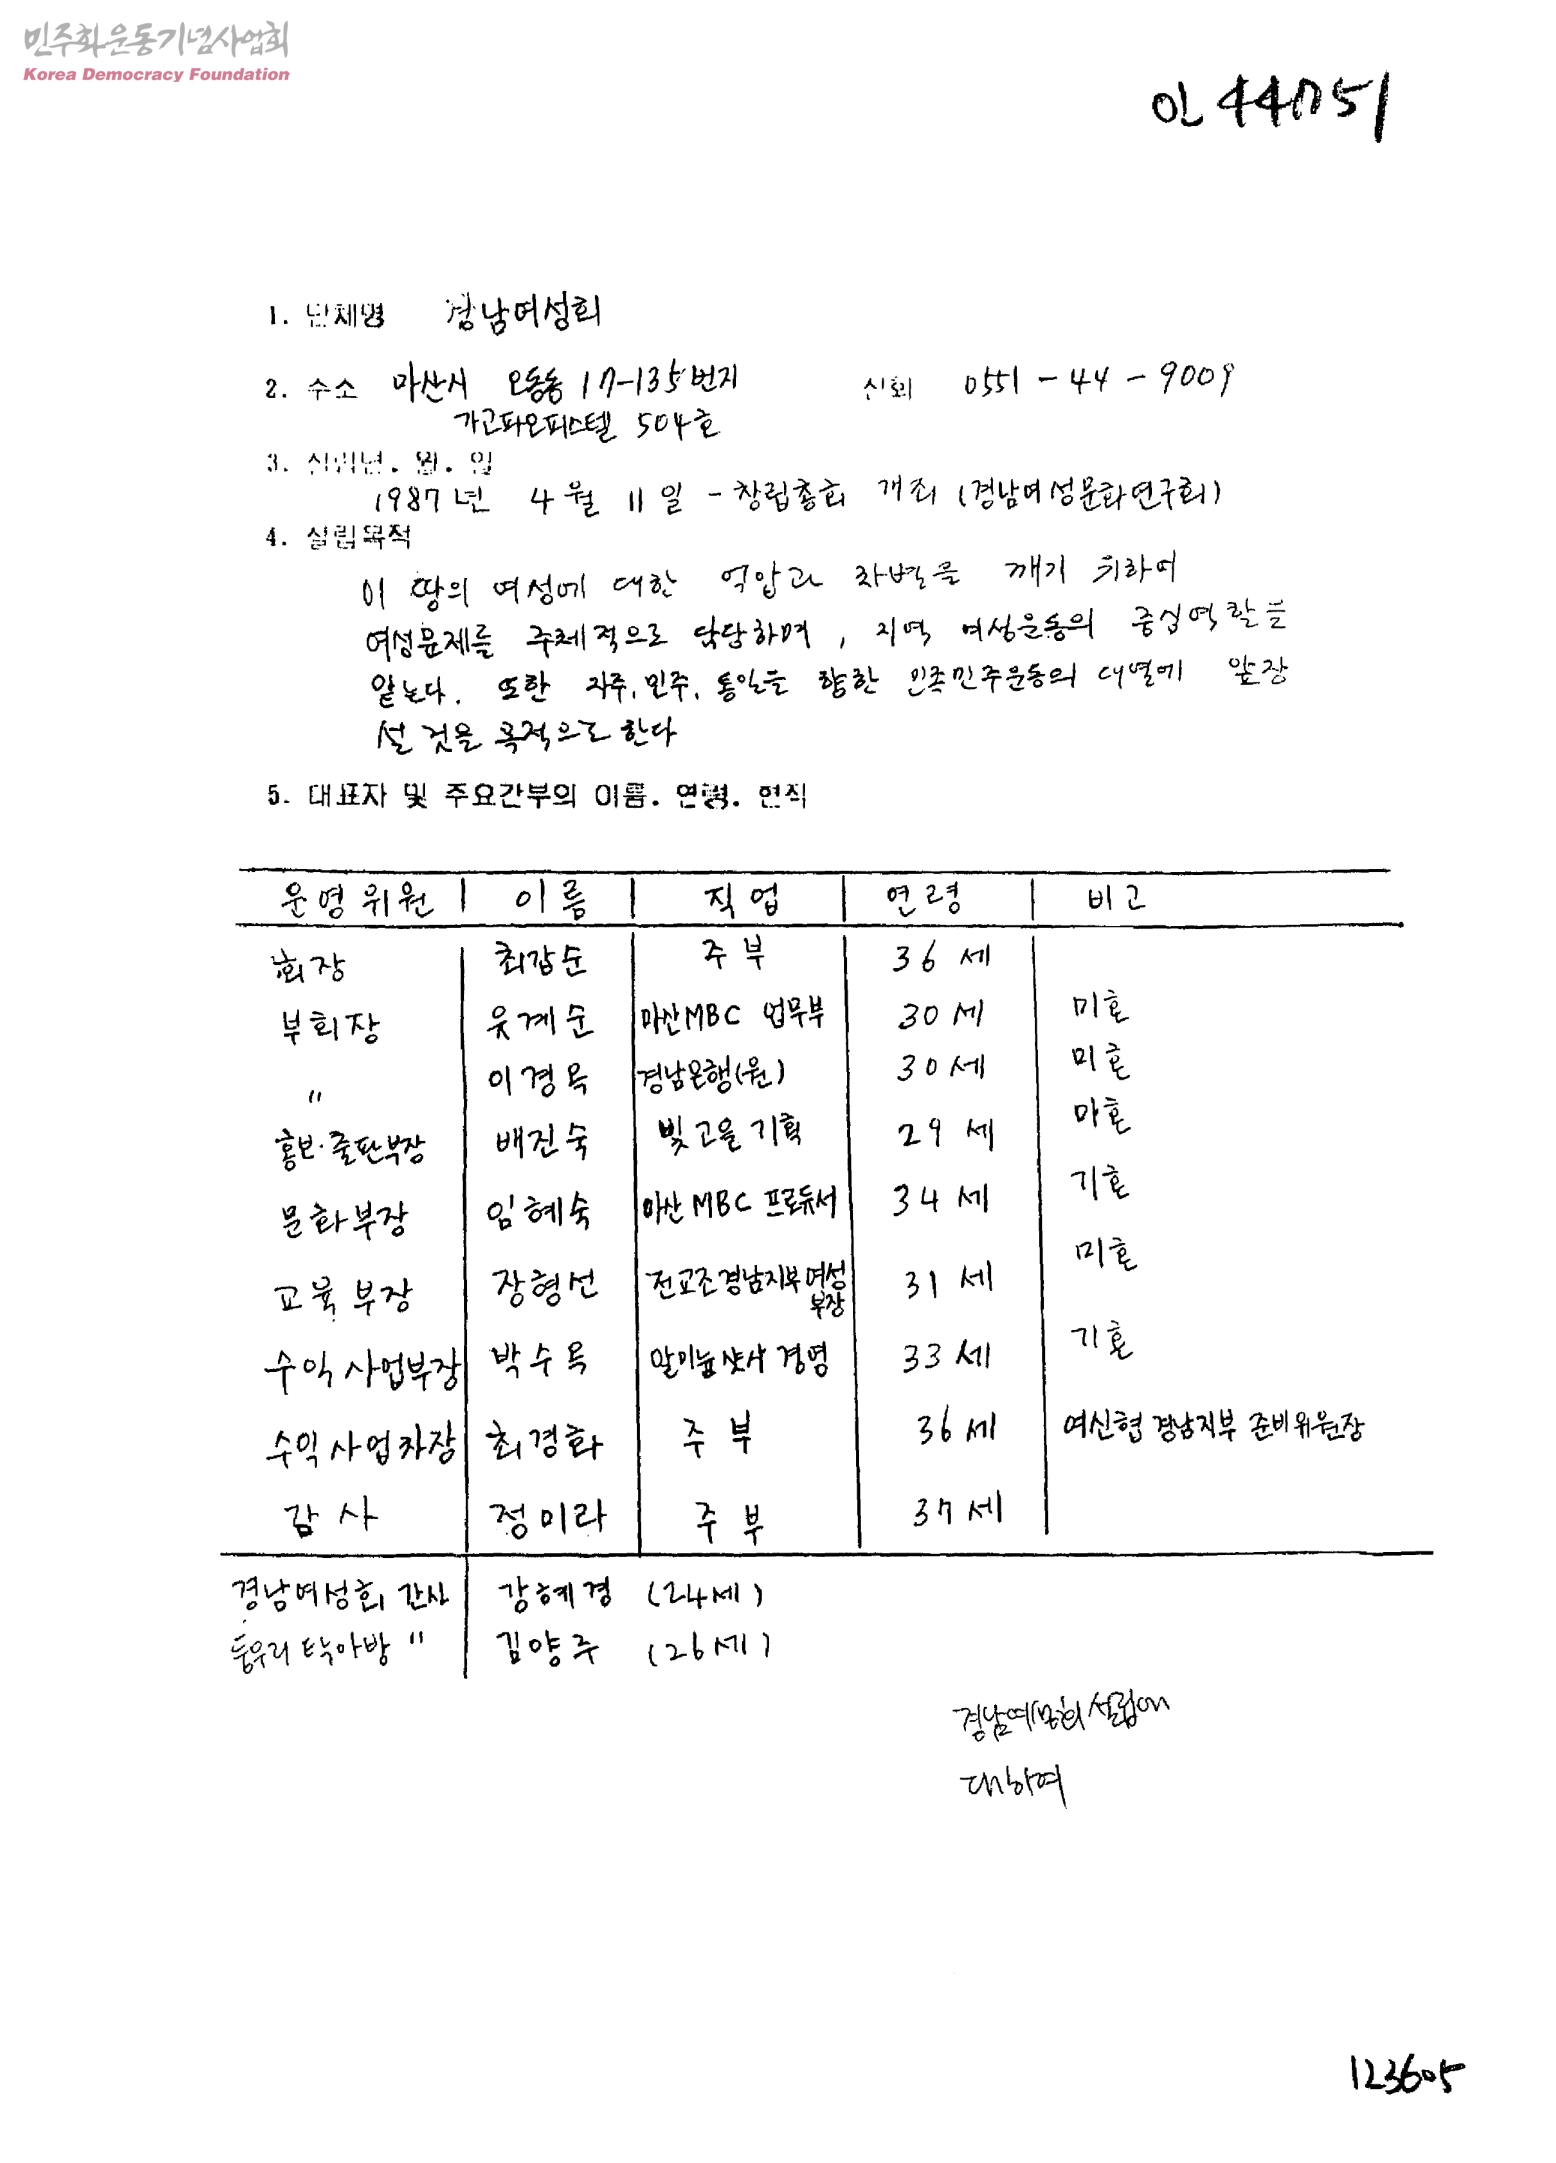 민주화운동기념사업회
Korea Democracy Foundation
인 44051
1. 단체명 경남여성회
2. 주소 마산시 오동동 17-135번지 전화 0551-44-9009
가고파오피스텔 504호
3. 설립년.월.일
1987년 4월 11일 - 창립총회 개최 (경남여성문화연구회)
4. 설립목적
이 땅의 여성에 대한 억압과 차별을 깨기 위하여
여성문제를 주체적으로 담당하며, 지역 여성운동의 중심역할을
맡는다. 또한 자주, 민주, 통일을 향한 민족민주운동의 대열에 앞장
설 것을 목적으로 한다
5. 대표자 및 주요간부의 이름. 연령. 현직
운영위원 이름 직업 연령 비고
회장 최갑순 주부 36세
부회장 윳계순 마산MBC 업무부 30세 미혼
" 이경옥 경남은행(원) 30세 미혼
홍보·출판부장 배진숙 빛고을 기획 29세 미혼
문화부장 임혜숙 마산MBC 프로듀서 34세 기혼
교육부장 장형선 전교조경남지부 여성부장 31세 미혼
수익사업부장 박수옥 알미늄샷사 경영 33세 기혼
수익사업차장 최경화 주부 36세 여신협 경남지부 준비위원장
감사 정미라 주부 37세
경남여성회 간사 강혜경 (24세)
둥우리 탁아방 " 김양주 (26세)
경남여성회 설립에
대하여
123605